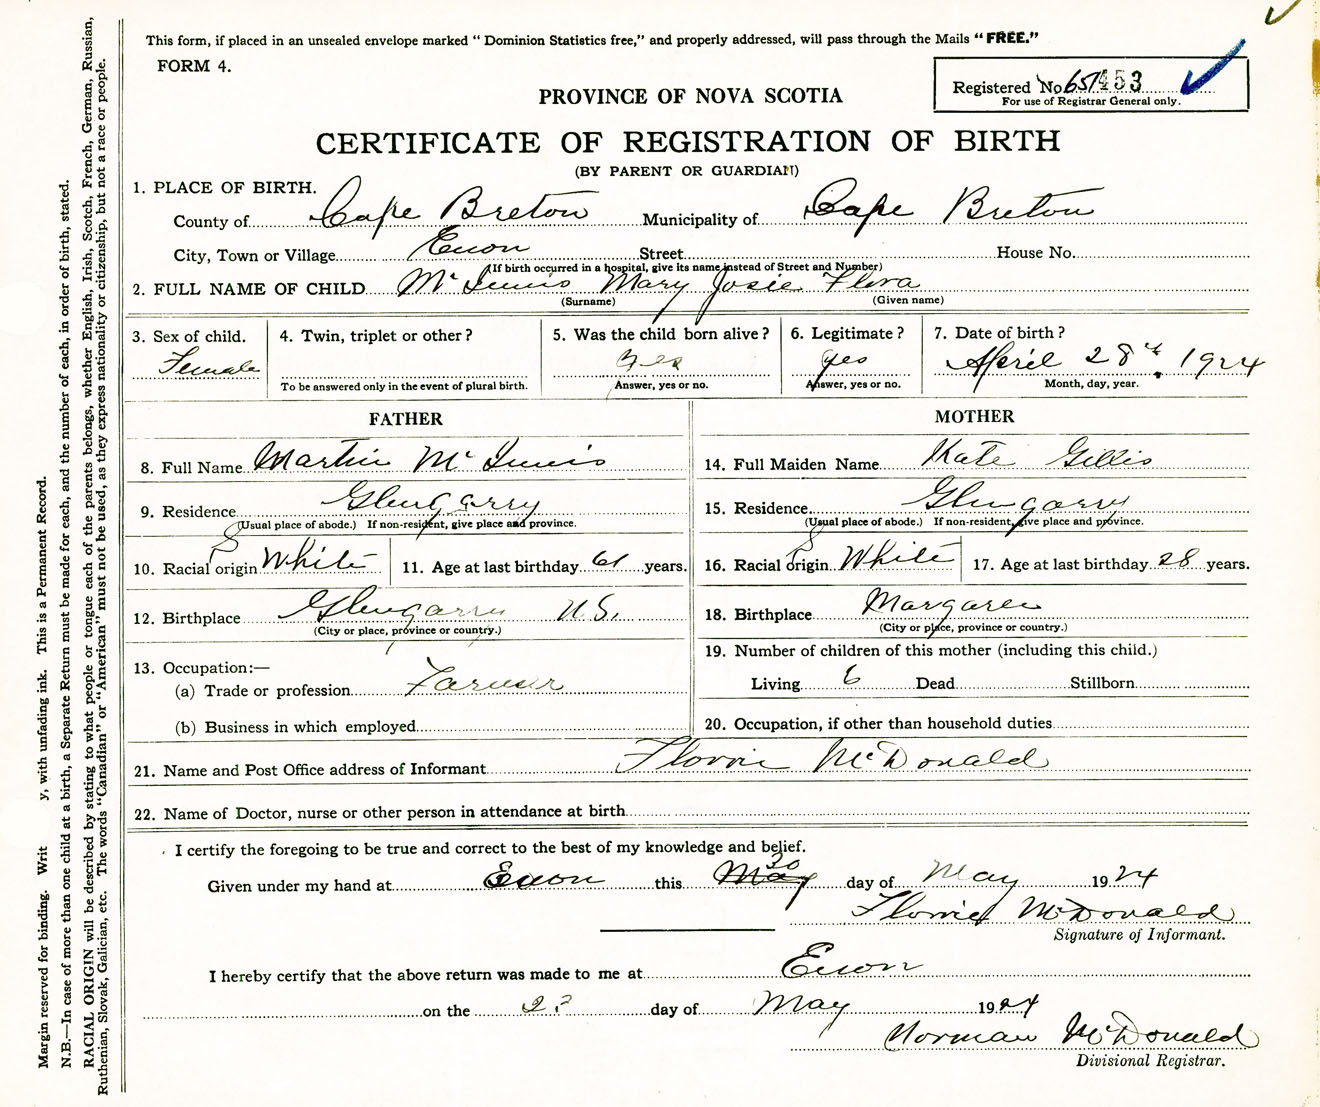 This form, if placed in an unsealed envelope marked "Dominion Statistics free," and properly addressed, will pass through the Mails "FREE."
FORM 4.
Registered No. 651453
For use of Registrar General only.
PROVINCE OF NOVA SCOTIA
CERTIFICATE OF REGISTRATION OF BIRTH
(BY PARENT OR GUARDIAN)
1. PLACE OF BIRTH.
County of Cape Breton Municipality of Cape Breton
City, Town or Village Enon Street House No.
(If birth occurred in a hospital, give its name instead of Street and Number)
2. FULL NAME OF CHILD McInnis Mary Josie Flora
(Surname) (Given name)
3. Sex of child. 4. Twin, triplet or other? 5. Was the child born alive? 6. Legitimate? 7. Date of birth?
Female Yes yes April 28th 1924
To be answered only in the event of plural birth. Answer, yes or no. Answer, yes or no. Month, day, year.
FATHER MOTHER
8. Full Name Martin McInnis 14. Full Maiden Name Kate Gillis
9. Residence Glengarry 15. Residence Glengarry
(Usual place of abode.) If non-resident, give place and province. (Usual place of abode.) If non-resident, give place and province.
10. Racial origin S White 11. Age at last birthday 61 years. 16. Racial origin S White 17. Age at last birthday 28 years.
12. Birthplace Glengarry N.S. 18. Birthplace Margaree
(City or place, province or country.) (City or place, province or country.)
13. Occupation:— 19. Number of children of this mother (including this child.)
(a) Trade or profession Farmer Living 6 Dead Stillborn
(b) Business in which employed 20. Occupation, if other than household duties
21. Name and Post Office address of Informant McDonald
22. Name of Doctor, nurse or other person in attendance at birth
I certify the foregoing to be true and correct to the best of my knowledge and belief.
Given under my hand at Enon this May 30 day of May 1924
McDonald
Signature of Informant.
I hereby certify that the above return was made to me at Enon
on the day of May 1924
Norman McDonald
Divisional Registrar.
Margin reserved for binding. Writ y, with unfading ink. This is a Permanent Record.
N.B.—In case of more than one child at a birth, a Separate Return must be made for each, and the number of each, in order of birth, stated.
RACIAL ORIGIN will be described by stating to what people or tongue each of the parents belongs, whether English, Irish, Scotch, French, German, Russian,
Ruthenian, Slovak, Galician, etc. The words "Canadian" or "American" must not be used, as they express nationality or citizenship, but not a race or people.